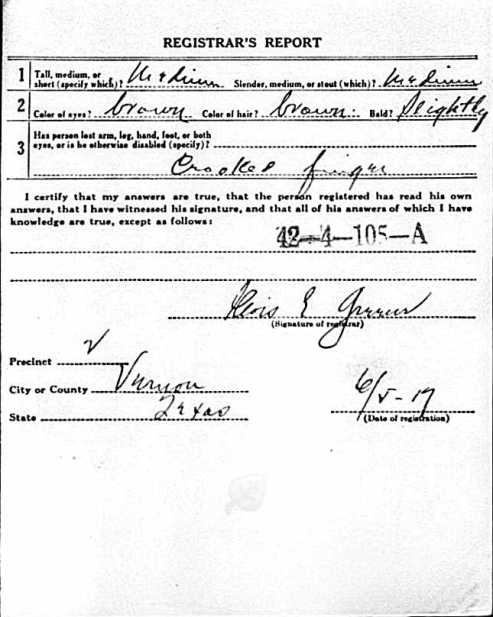 REGISTRAR'S REPORT
1 Tall, medium, or short (specify which)? Medium Slender, medium, or stout (which)? Medium
2 Color of eyes? brown Color of hair? brown. Bald? Slightly
3 Has person lost arm, leg, hand, foot, or both eyes, or is he otherwise disabled (specify)?
Crooked finger
I certify that my answers are true, that the person registered has read his own
answers, that I have witnessed his signature, and that all of his answers of which I have
knowledge are true, except as follows:
42-4-105-A
E
(Signature of registrar)
Precinct V
City or County Vernon
State Texas
6/5-17
(Date of registration)